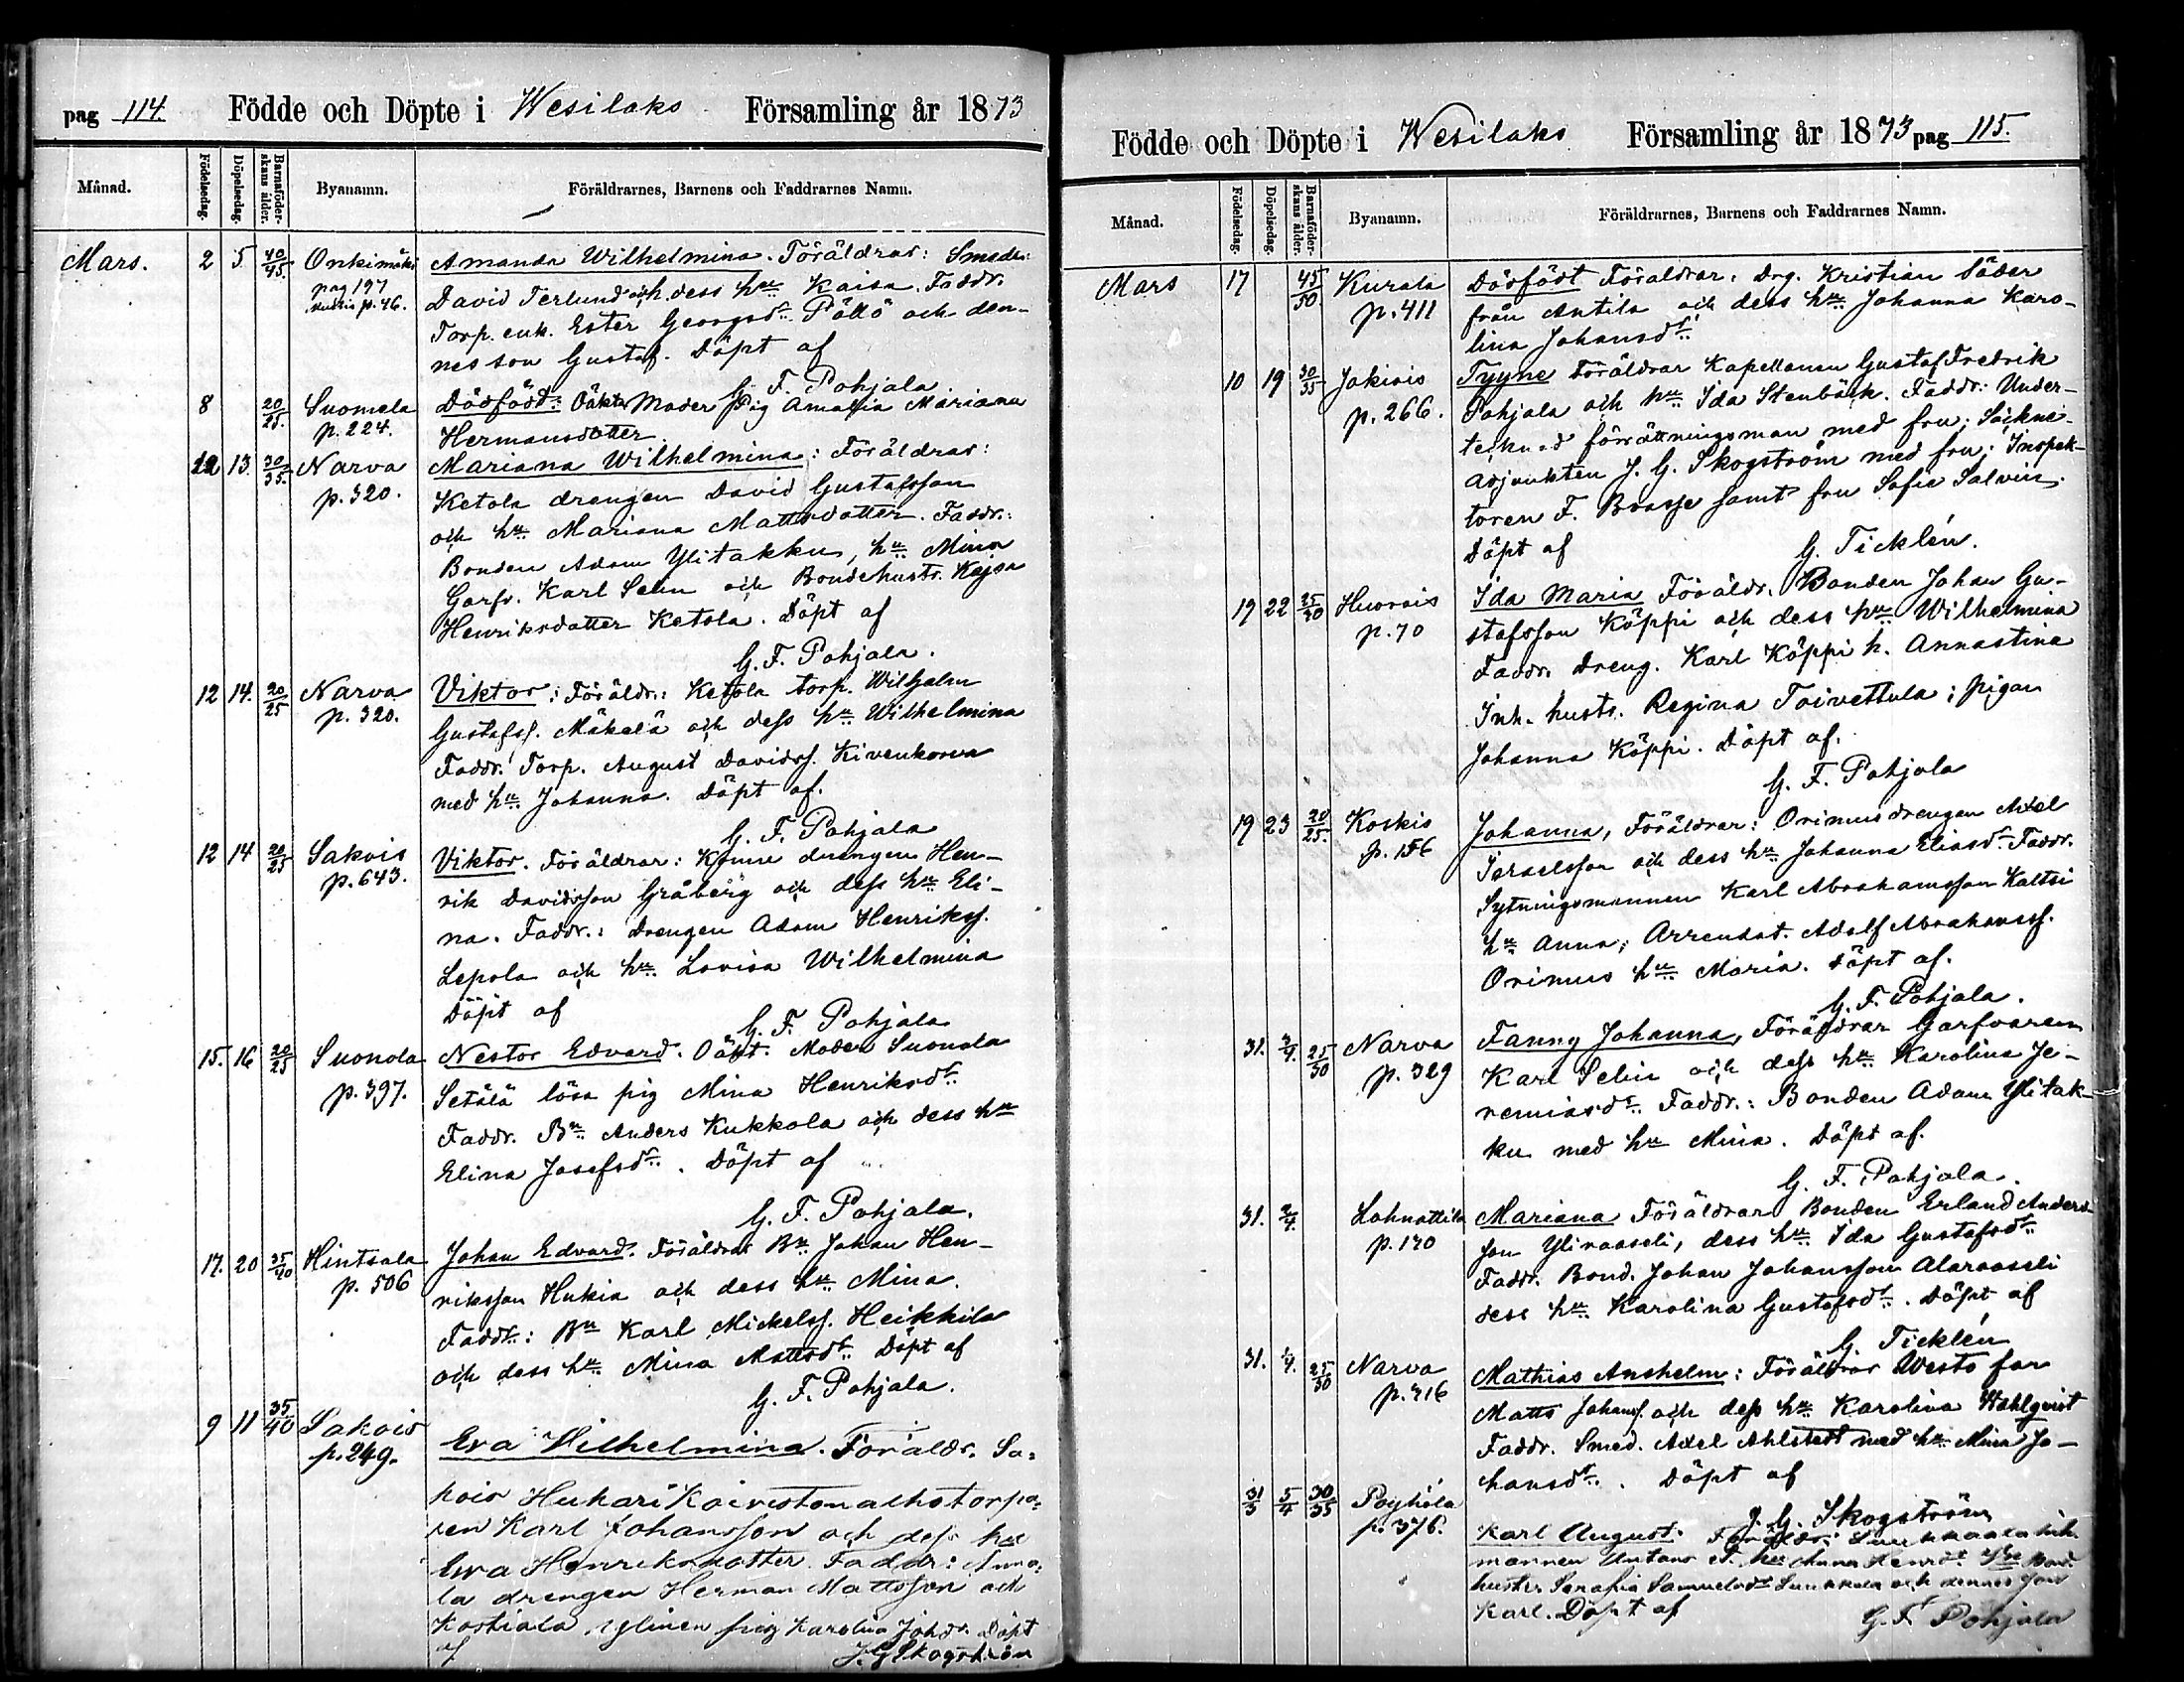 pag 114. Födde och Döpte i Wesilaks Församling år 1873
Månad. Födelsedag. Döpelsedag. Barnaföderskans ålder. Byanamn. Föräldrarnes, Barnens och Faddrarnes Namn.
Mars. 2 5 40/45. Onkimäki Amanda Wilhelmina. Föräldrar: Smeden
pag 197 David Terlund och dess hu Kaisa. Faddr.
p. 46. Torp. enk. Ester Georgsdr Pöllö och den-
nes son Gustaf. Döpt af
G. F. Pohjala.
8 20/25. Suomela Dödfödd: Oäkta Moder Pig Amalia Mariana
p. 224. Hermansdotter.
12 13. 30/35. Narva Mariana Wilhelmina: Föräldrar:
p. 320. Ketola drengen David Gustafsson
och hu Mariana Mattsdotter. Faddr.:
Bonden Adam Ylitakku, hu Mina
Garfv. Karl Selin och Bondehustr. Kajsa
Henriksdotter Ketola. Döpt af
G. F. Pohjala.
12 14. 20/25 Narva Viktor: Föräldr.: Ketola torp. Wilhelm
p. 320. Gustafss. Mäkelä och dess hu Wilhelmina
Faddr. Torp. August Davidss. Kivenkorva
med hu Johanna. Döpt af.
G. F. Pohjala
12 14 20/25 Sakois Viktor. Föräldrar: drengen Hen-
p. 643. rik Davidsson Gråberg och dess hu Eli-
na. Faddr.: Drengen Adam Henrikss.
Lepola och hu Lovisa Wilhelmina
Döpt af
G. F. Pohjala
15. 16 20/25 Suonola Nestor Edvard. Oäkt. Moder Suonola
p. 397. Setälä lösa pig Mina Henriksdr
Faddr. Bn Anders Kukkola och dess hu
Elina Josefsdr. Döpt af
G. F. Pohjala.
17. 20 35/40 Hintsala Johan Edvard. Föräldrar Bn Johan Hen-
p. 506 riksson Hukia och dess hu Mina.
Faddr: Bn Karl Mickelss. Heikkilä
och dess hu Mina Mattsdr Döpt af
G. F. Pohjala.
9 11 35/40 Sakois Eva Wilhelmina. Föräldr. Sa-
p. 249. kois Hukari Koiviston alhstorpa-
ren Karl Johansson och dess hu
Eva Henriksdotter. Faddr: Anno-
la drengen Herman Mattsson och
Kostiala Ylinen pig Karolina Johdr. Döpt
af J. G Skogström
Födde och Döpte i Wesilaks Församling år 1873 pag 115.
Månad. Födelsedag. Döpelsedag. Barnaföderskans ålder. Byanamn. Föräldrarnes, Barnens och Faddrarnes Namn.
Mars 17 45/50 Kurala Dödfödt Föräldrar: Drg. Kristian Söder
p. 411 från Antila och dess hu Johanna Karo-
lina Johansdr
10 19 30/35 Jokiois Tyyne Föräldrar Kapellanen Gustaf Fredrik
p. 266. Pohjala och hu Ida Stenbäck. Faddr: Under-
tecknad förrättningsman med fru; Sockne-
adjunkten J. G. Skogström med fru; Inspek-
toren F. Brasse samt fru Sofie Salvin.
Döpt af G. Ticklén.
19 22 25/30 Huovois Ida Maria Föräldr. Bonden Johan Gu-
p. 70 stafsson Köppi och dess hu Wilhelmina
Faddr. Dreng. Karl Köppi h. Annastina
Inh. hustr. Regina Toivettula; pigan
Johanna Köppi. Döpt af.
G. F. Pohjola
19 23 20/25. Koskis Johanna, Föräldrar: Orimusdrengen Axel
p. 156 Israelsson och dess hu Johanna Eliasdr. Faddr.
Sytningsmannen Karl Abrahamsson Kaltsi
hu Anna; Arrendat. Adolf Abrahamss.
Orimus hu Maria. Döpt af.
G. F. Pohjala.
31. 2/4. 25/30 Narva Fanny Johanna, Föräldrar Garfvaren
p. 329 Karl Selin och dess hu Karolina Je-
remiasdr Faddr.: Bonden Adam Ylitak-
ku med hu Mina. Döpt af.
G. F. Pohjala.
31. 2/4. Lahnattila Mariana Föräldrar Bonden Erland Anders-
p. 170 son Yliroaseli, dess hu Ida Gustafsdr
Faddr. Bond. Johan Johansson Alaroaseli
dess hu Karolina Gustafsdr. Döpt af
G. Ticklén
31. 1/4. 25/30 Narva Mathias Anshelm: Föräldrar Westo far
p. 316 Matts Johanss. och dess hu Karolina Wahlqvist
Faddr. Smed. Axel Ahlstedt med hu Mina Jo-
hansdr. Döpt af
J. G. Skogström
31/3 5/4 30/35 Pöyhölä Karl August. Föräldr:
p. 376. mannen hu Anna Henrdr
huster Serafia Samuelsdr och dennes son
Karl. Döpt af G. F. Pohjola